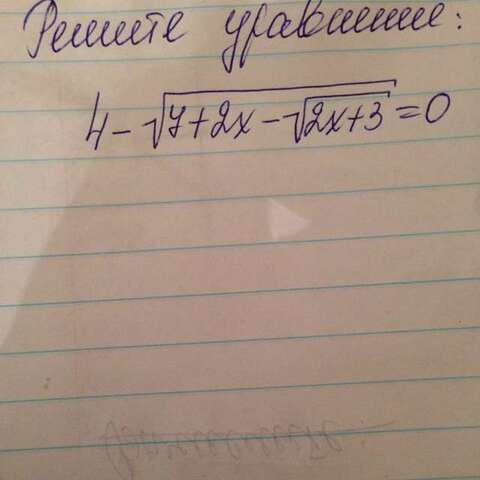 Решите уравнение:
4-√(7+2x-√(2x+3))=0